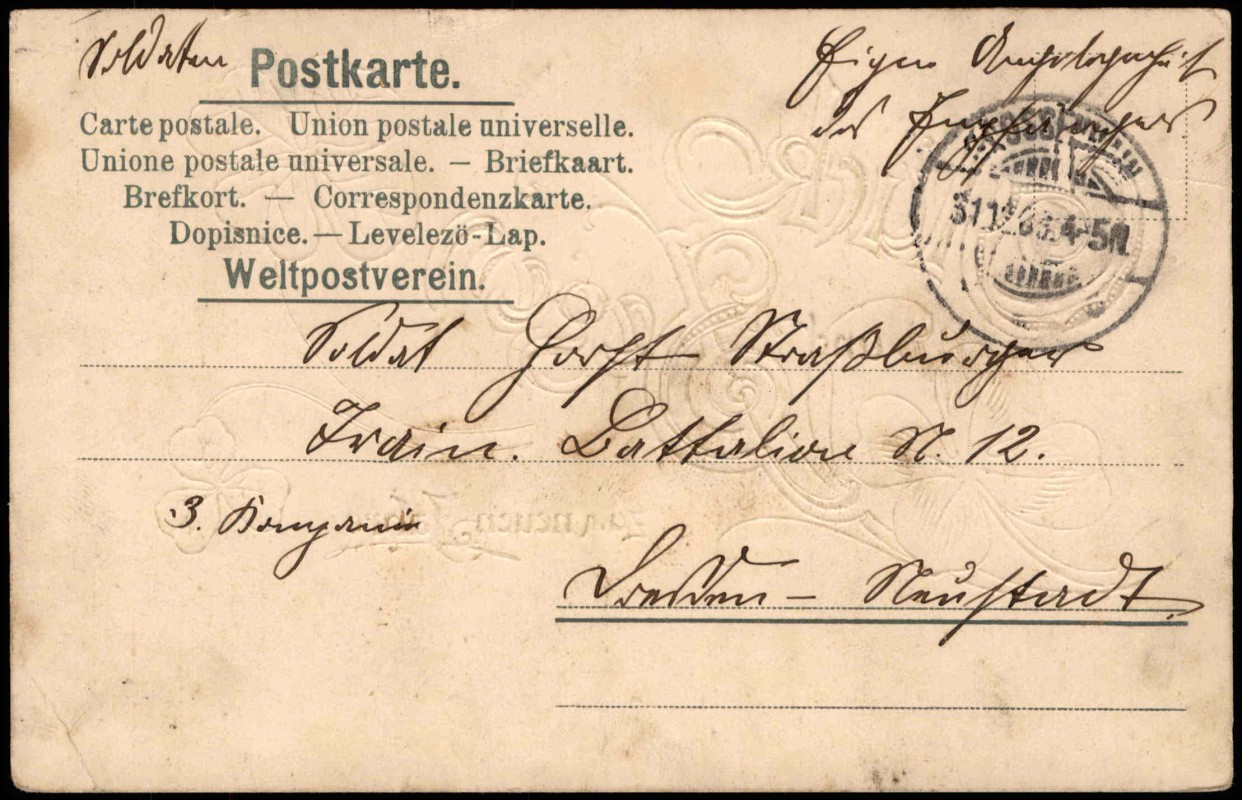 Soldaten
Postkarte.
Eigene Angelegenheit
des Empfängers
Carte postale. Union postale universelle.
Unione postale universale. – Briefkaart.
Brefkort. — Correspondenzkarte.
Dopisnice. — Levelezö-Lap.
Weltpostverein.
31.12.03. 4-5N.
Soldat Horst Straßburger
Train. Battalion N. 12.
3. Kompanie
Dresden – Neustadt.
neuen